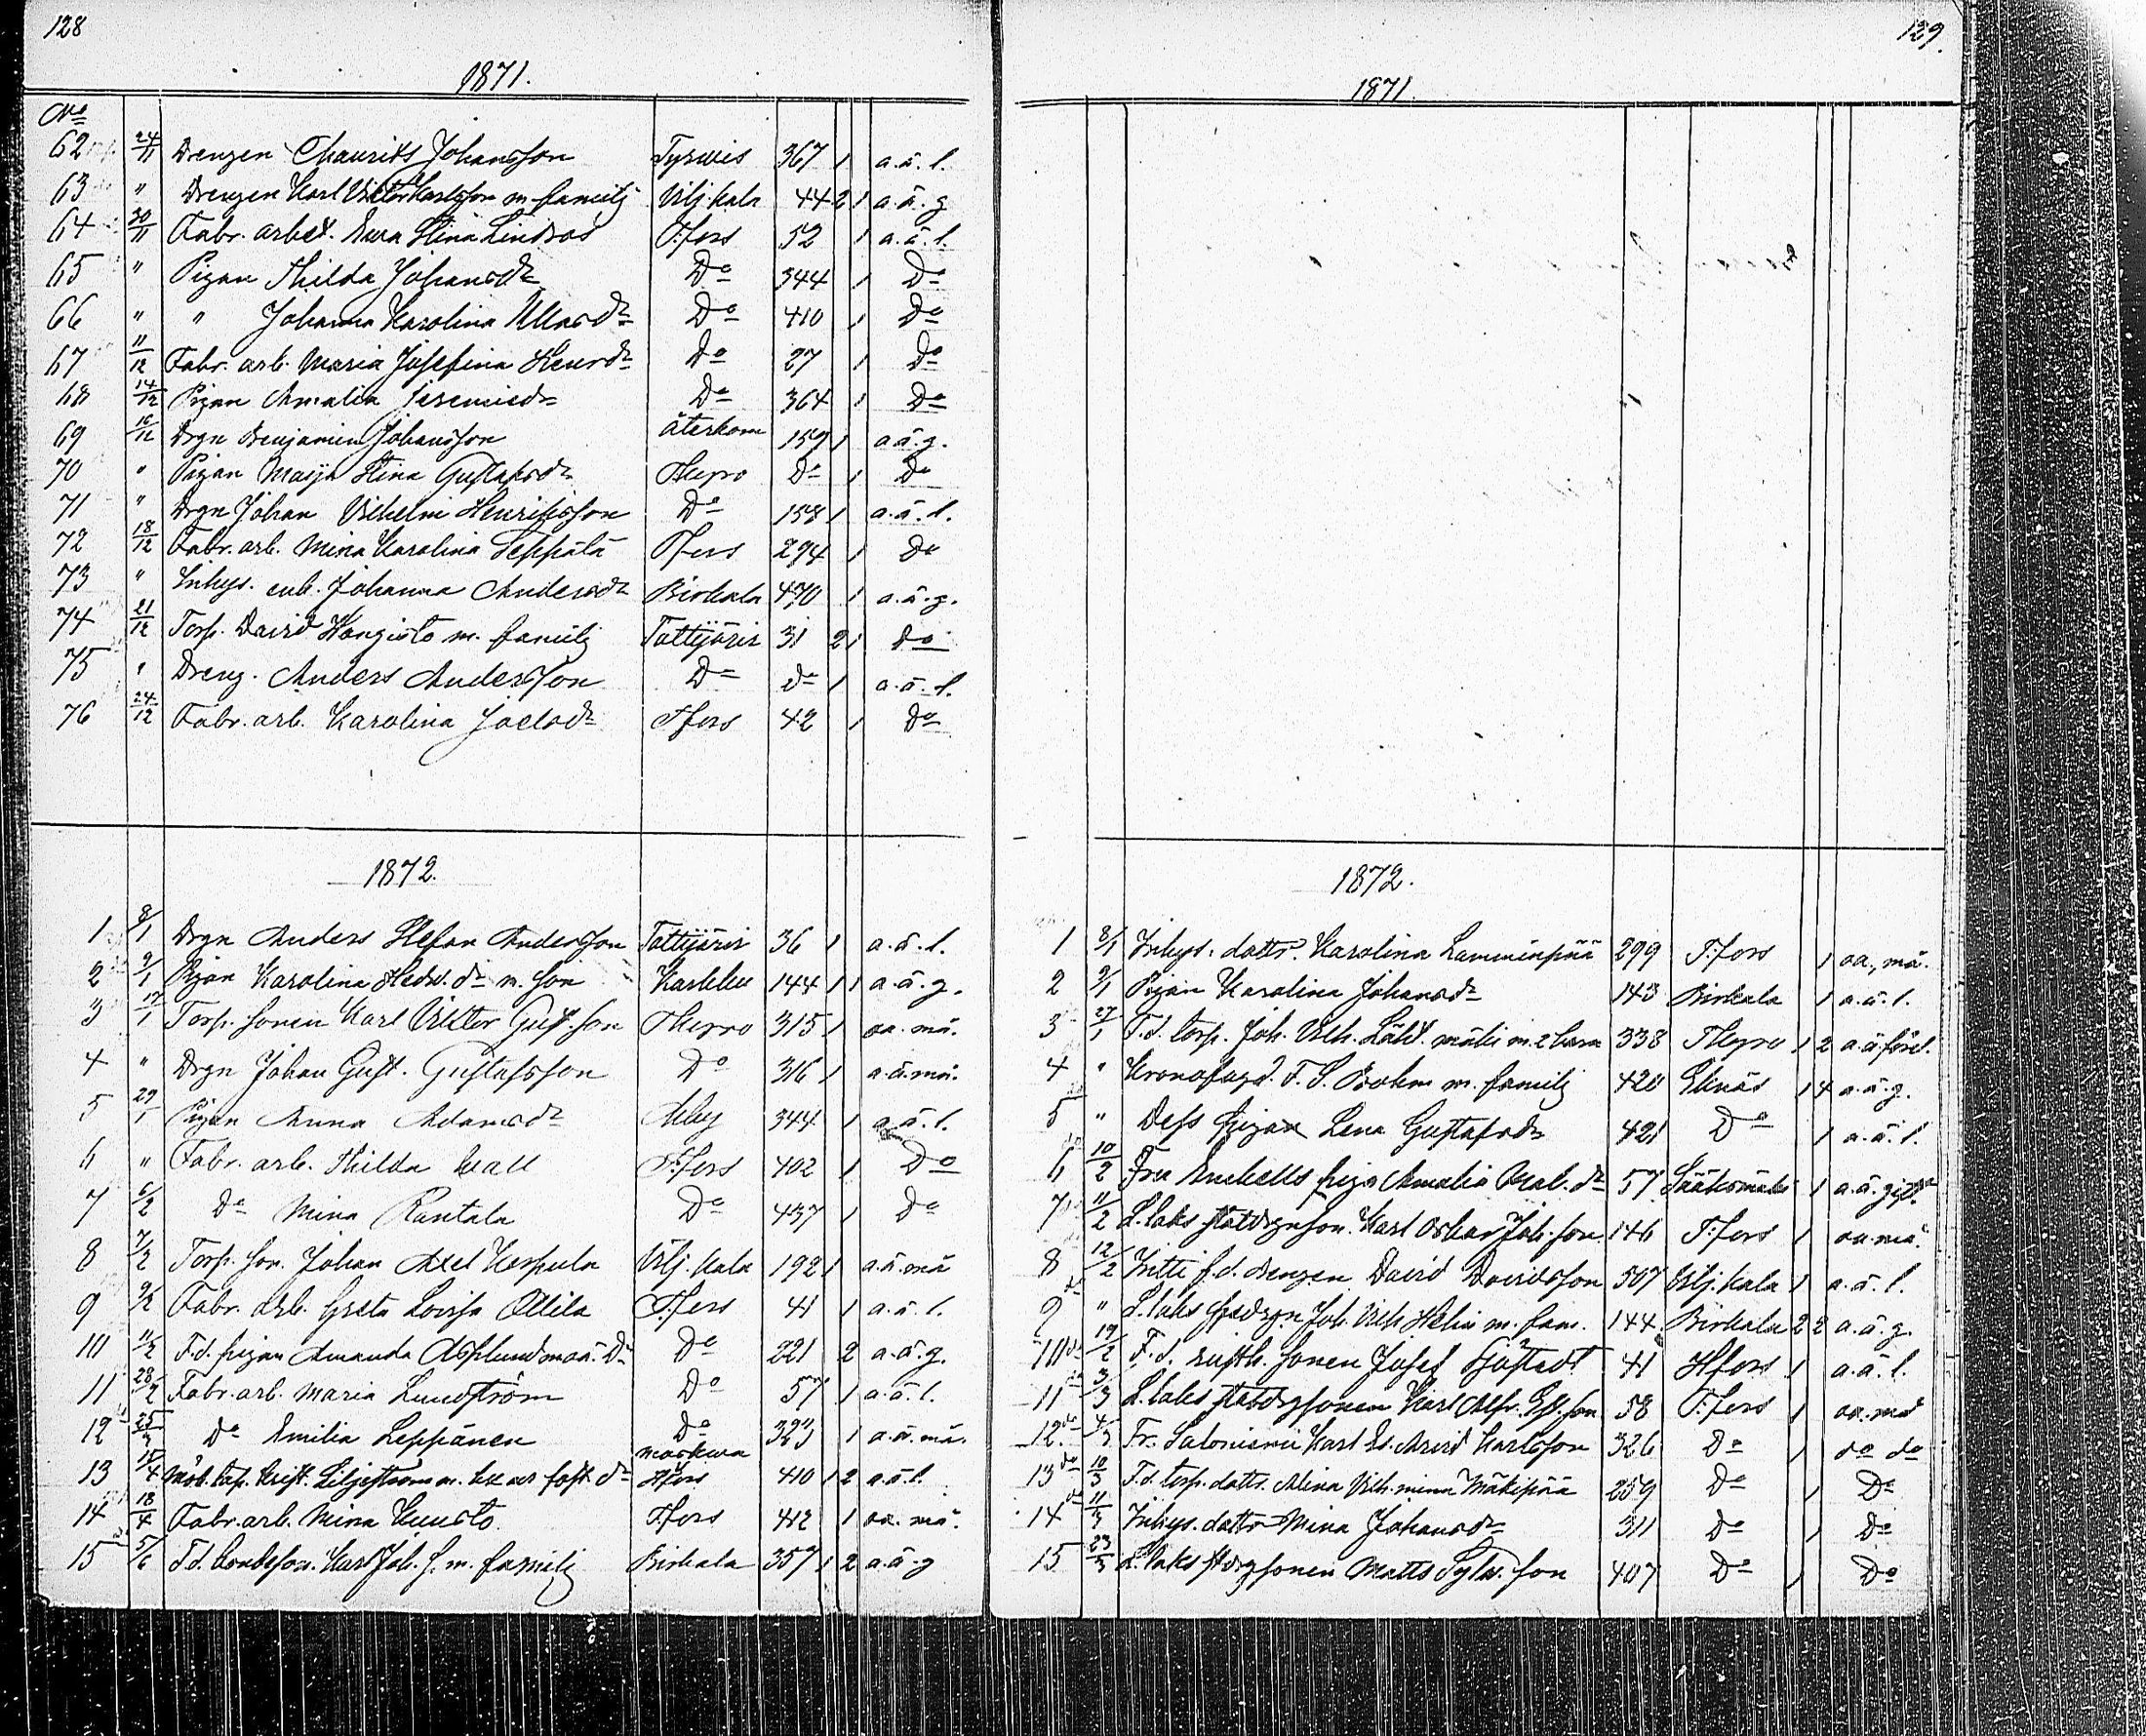 128
1871.
No
62 24/11 Drengen Mauritz Johansson Tyrwis 367 1 a.ä.l.
63 " Drengen Karl Viktor Karlsson m. familj Wilj.kala 44 2 1 a.ä.g
64 30/11 Fabr. arbet. Eva Stina Lindros T:fors 52 1 a.ä.l.
65 " Pigan Hilda Johansdr Do 344 1 Do
66 " " Johanna Karolina Do 410 1 Do
67 11/12 Fabr. arb. Maria Josefina Henrdr Do 27 1 Do
68 14/12 Pigan Amalia Jeremiedr Do 364 1 Do
69 16/12 Drgn Benjamin Johansson återkom 159 1 a.ä.g.
70 " Pigan Maija Stina Gustafsdr Do 1 Do
71 " Drgn Johan Vilhelm Henriksson Do 158 1 a.ä.l.
72 18/12 Fabr. arb. Mina Karolina Seppälä Tfors 294 1 Do
73 " Inhys. enk. Johanna Andersdr Birkala 470 1 a.ä.g.
74 21/12 Torp. David Kangisto m. familj Tottijärvi 31 2 1 Do
75 " Dreng. Anders Andersson Do Do 1 a.ä.l.
76 24/12 Fabr. arb. Karolina Joelsdr Tfors 42 1 Do
1872.
1 8/1 Drgn Anders Stefan Andersson Tottijärvi 36 1 a.ä.l.
2 9/1 Pigan Karolina Hedv.dr m. son Karkku 144 1 1 a.ä.g.
3 17/1 Torp. sonen Karl Viktor Gust.son 315 1 oa. mä.
4 " Drgn Johan Gust. Gustafsson Do 316 1 a.ä.mä.
5 29/1 Pigan Anna Adamsdr 344 1 a.ä.l.
6 " Fabr. arb. Hilda Wall T:fors 402 1 Do
7 6/2 Do Mina Rantala Do 437 1 Do
8 7/2 Torp. son. Johan Axel Kespula Wilj.kala 192 1 a.ä.mä
9 9/2 Fabr. arb. Greta Lovisa Ollila T:fors 41 1 a.ä.l.
10 11/2 F.d. pigan Amanda Asplund m. oä. Dr Do 221 2 a.ä.g.
11 28/2 Fabr. arb. Maria Lundström Do 57 1 a.ä.l.
12 25/3 Do Emilia Leppänen Do 323 1 a.ä.mä.
13 15/4 Krist. Liljeström m. fost.dr Moskwa Hfors 410 1 2 a.ä.l.
14 18/4 Fabr. arb. Mina Kuusto Tfors 412 1 oa. mä.
15 5/6 F.d. bondeson. Karl Joh. S. m. familj Birkala 357 1 2 a.ä.g
129.
1871.
1872.
1 8/1 Inhys. dattr. Karolina Lamminpää 299 T:fors 1 oa., mä.
2 9/1 Pigan Karolina Johansdr 143 Birkala 1 a.ä.l.
3 27/1 F.d. torp. Joh. Vilh. m. 2 barn 338 1 2 a.ä.
4 " Kronofogd. F. S. m. familj 420 Ekenäs 1 4 a.ä.g.
5 " Dess pigan Lena Gustafsdr 421 Do 1 a.ä.l.
6 10/2 Fru piga Amalia 57 Sääksmäki 1 a.ä.
7 11/2 L.laks statdrgnson. Karl Oskar Joh.son 146 T:fors 1 oa. mä.
8 12/2 Intti f.d. drengen David Davidsson 507 Wilj.kala 1 a.ä.l.
9 " L.laks Joh. Vilh. Helin m. fam. 144 Birkala 2 2 a.ä.g.
10 19/2 F.d. sonen Josef Sjöstedt 41 Hfors 1 a.ä.l.
11 3/3 L.laks statdrgsonen Karl Alfr. Gst.son 58 T:fors 1 oa. mä
12 4/3 Fr. Karl Ed. Arvid Karlsson 326 Do 1 do do
13 10/3 F.d. torp. dattr. Alina Vilh.mina Mäkipää 259 Do 1 Do
14 11/3 Inhys. dattr Mina Johansdr 311 Do 1 Do
15 23/3 L.laks stdrgsonen Matts Sylv.son 407 Do 1 Do